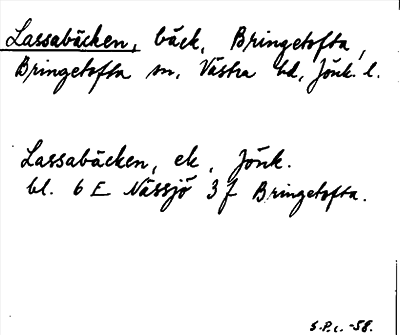 Lassabäcken, bäck, Bringetofta,
Bringetofta sn, Västra hd, Jönk. l.
Lassabäcken, ek, Jönk.
bl. 6 E Nässjö 3 f Bringetofta.
S.P.c. -58.